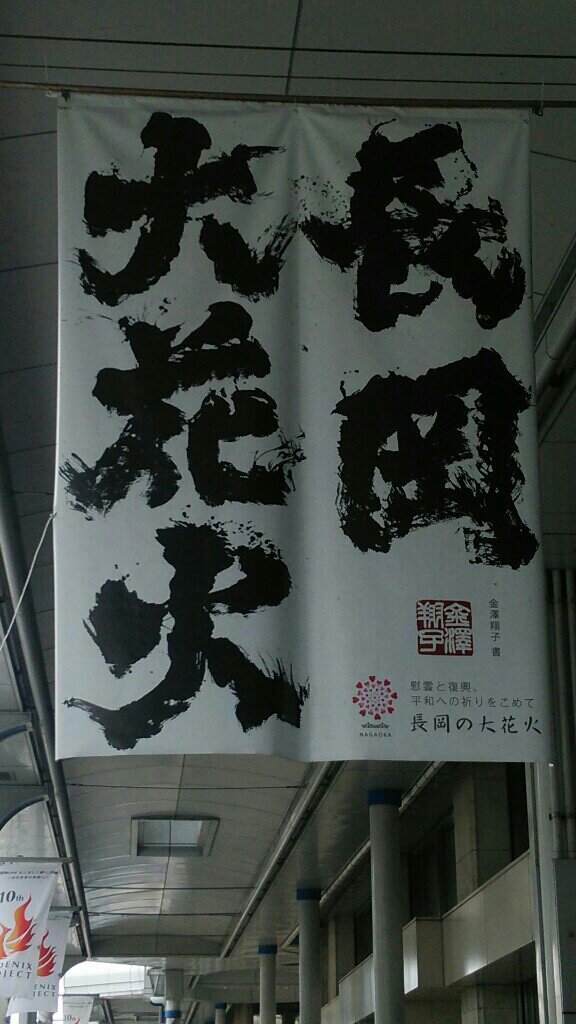 長岡
大花火
金澤翔子 書
金澤
翔子
慰霊と復興、
平和への祈りをこめて
長岡の大花火
NAGAOKA
10th